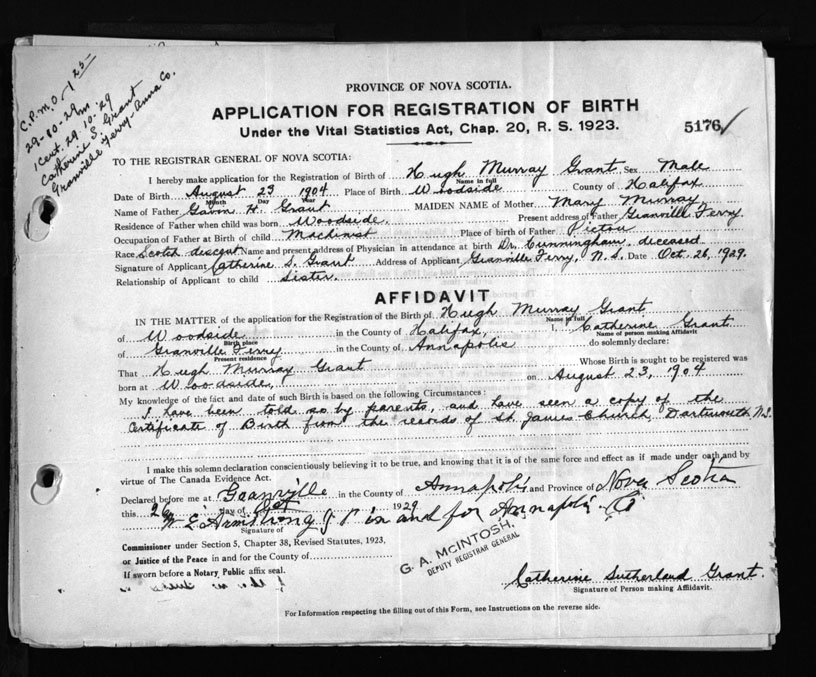 C.P.M.O. 1 25
29-10-29 m
1 Cert. 29.10.29
Catherine S. Grant
Granville Ferry - Anna Co.
PROVINCE OF NOVA SCOTIA.
APPLICATION FOR REGISTRATION OF BIRTH
Under the Vital Statistics Act, Chap. 20, R. S. 1923.
5176
TO THE REGISTRAR GENERAL OF NOVA SCOTIA:
I hereby make application for the Registration of Birth of Hugh Murray Grant Sex Male
Name in full
Date of Birth August 23 1904 Place of Birth Woodside County of Halifax
Month Day Year
Name of Father Gavin H. Grant MAIDEN NAME of Mother Mary Murray
Residence of Father when child was born Woodside. Present address of Father Granville Ferry.
Occupation of Father at Birth of child Machinist Place of birth of Father Pictou
Race Scotch descent Name and present address of Physician in attendance at birth Dr. Cunningham, deceased
Signature of Applicant Catherine S. Grant Address of Applicant Granville Ferry, N.S. Date Oct. 26, 1929.
Relationship of Applicant to child Sister.
AFFIDAVIT
IN THE MATTER of the application for the Registration of the Birth of Hugh Murray Grant
Name in full
of Woodside in the County of Halifax, I, Catherine Grant
Birth place Name of person making Affidavit
of Granville Ferry in the County of Annapolis do solemnly declare:
Present residence
That Hugh Murray Grant Whose Birth is sought to be registered was
born at Woodside, on August 23, 1904
My knowledge of the fact and date of such Birth is based on the following Circumstances:
I have been told so by parents, and have seen a copy of the
Certificate of Birth from the records of St. James Church, Dartmouth N.S.
I make this solemn declaration conscientiously believing it to be true, and knowing that it is of the same force and effect as if made under oath and by
virtue of The Canada Evidence Act.
Declared before me at Granville in the County of Annapolis and Province of Nova Scotia
this 26 day of Oct 1929
W E Armstrong J P in and for Annapolis Co
Signature of
Commissioner under Section 5, Chapter 38, Revised Statutes, 1923,
or Justice of the Peace in and for the County of
If sworn before a Notary Public affix seal.
G. A. McINTOSH,
DEPUTY REGISTRAR GENERAL
Catherine Sutherland Grant.
Signature of Person making Affidavit.
For Information respecting the filling out of this Form, see Instructions on the reverse side.